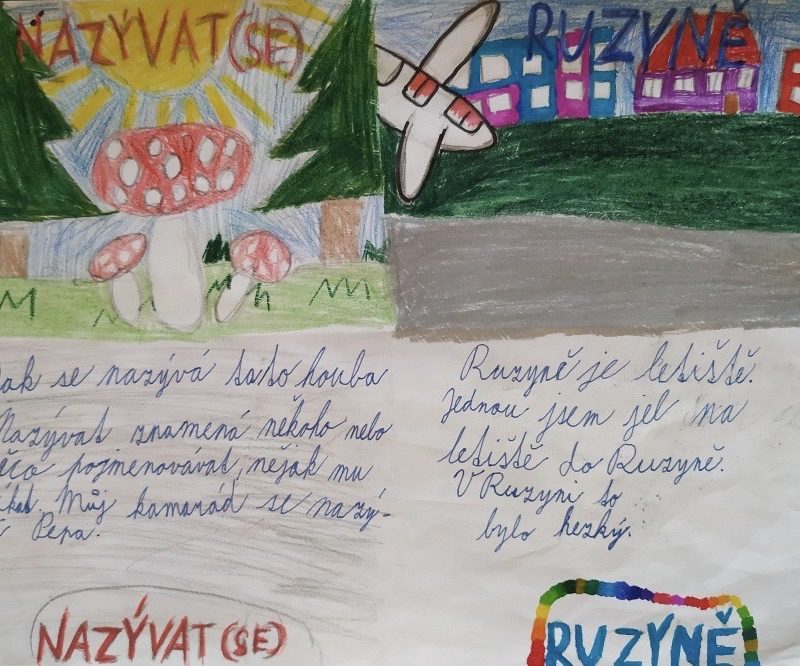 NAZÝVAT(SE)
Jak se nazývá tato houba
Nazývat znamená někoho nebo
něco pojmenovávat, nějak mu
říkat. Můj kamarád se nazý-
Pepa.
NAZÝVAT(SE)
RUZYNĚ
Ruzyně je letiště.
Jednou jsem jel na
letiště do Ruzyně.
V Ruzyni to
bylo hezký.
RUZYNĚ